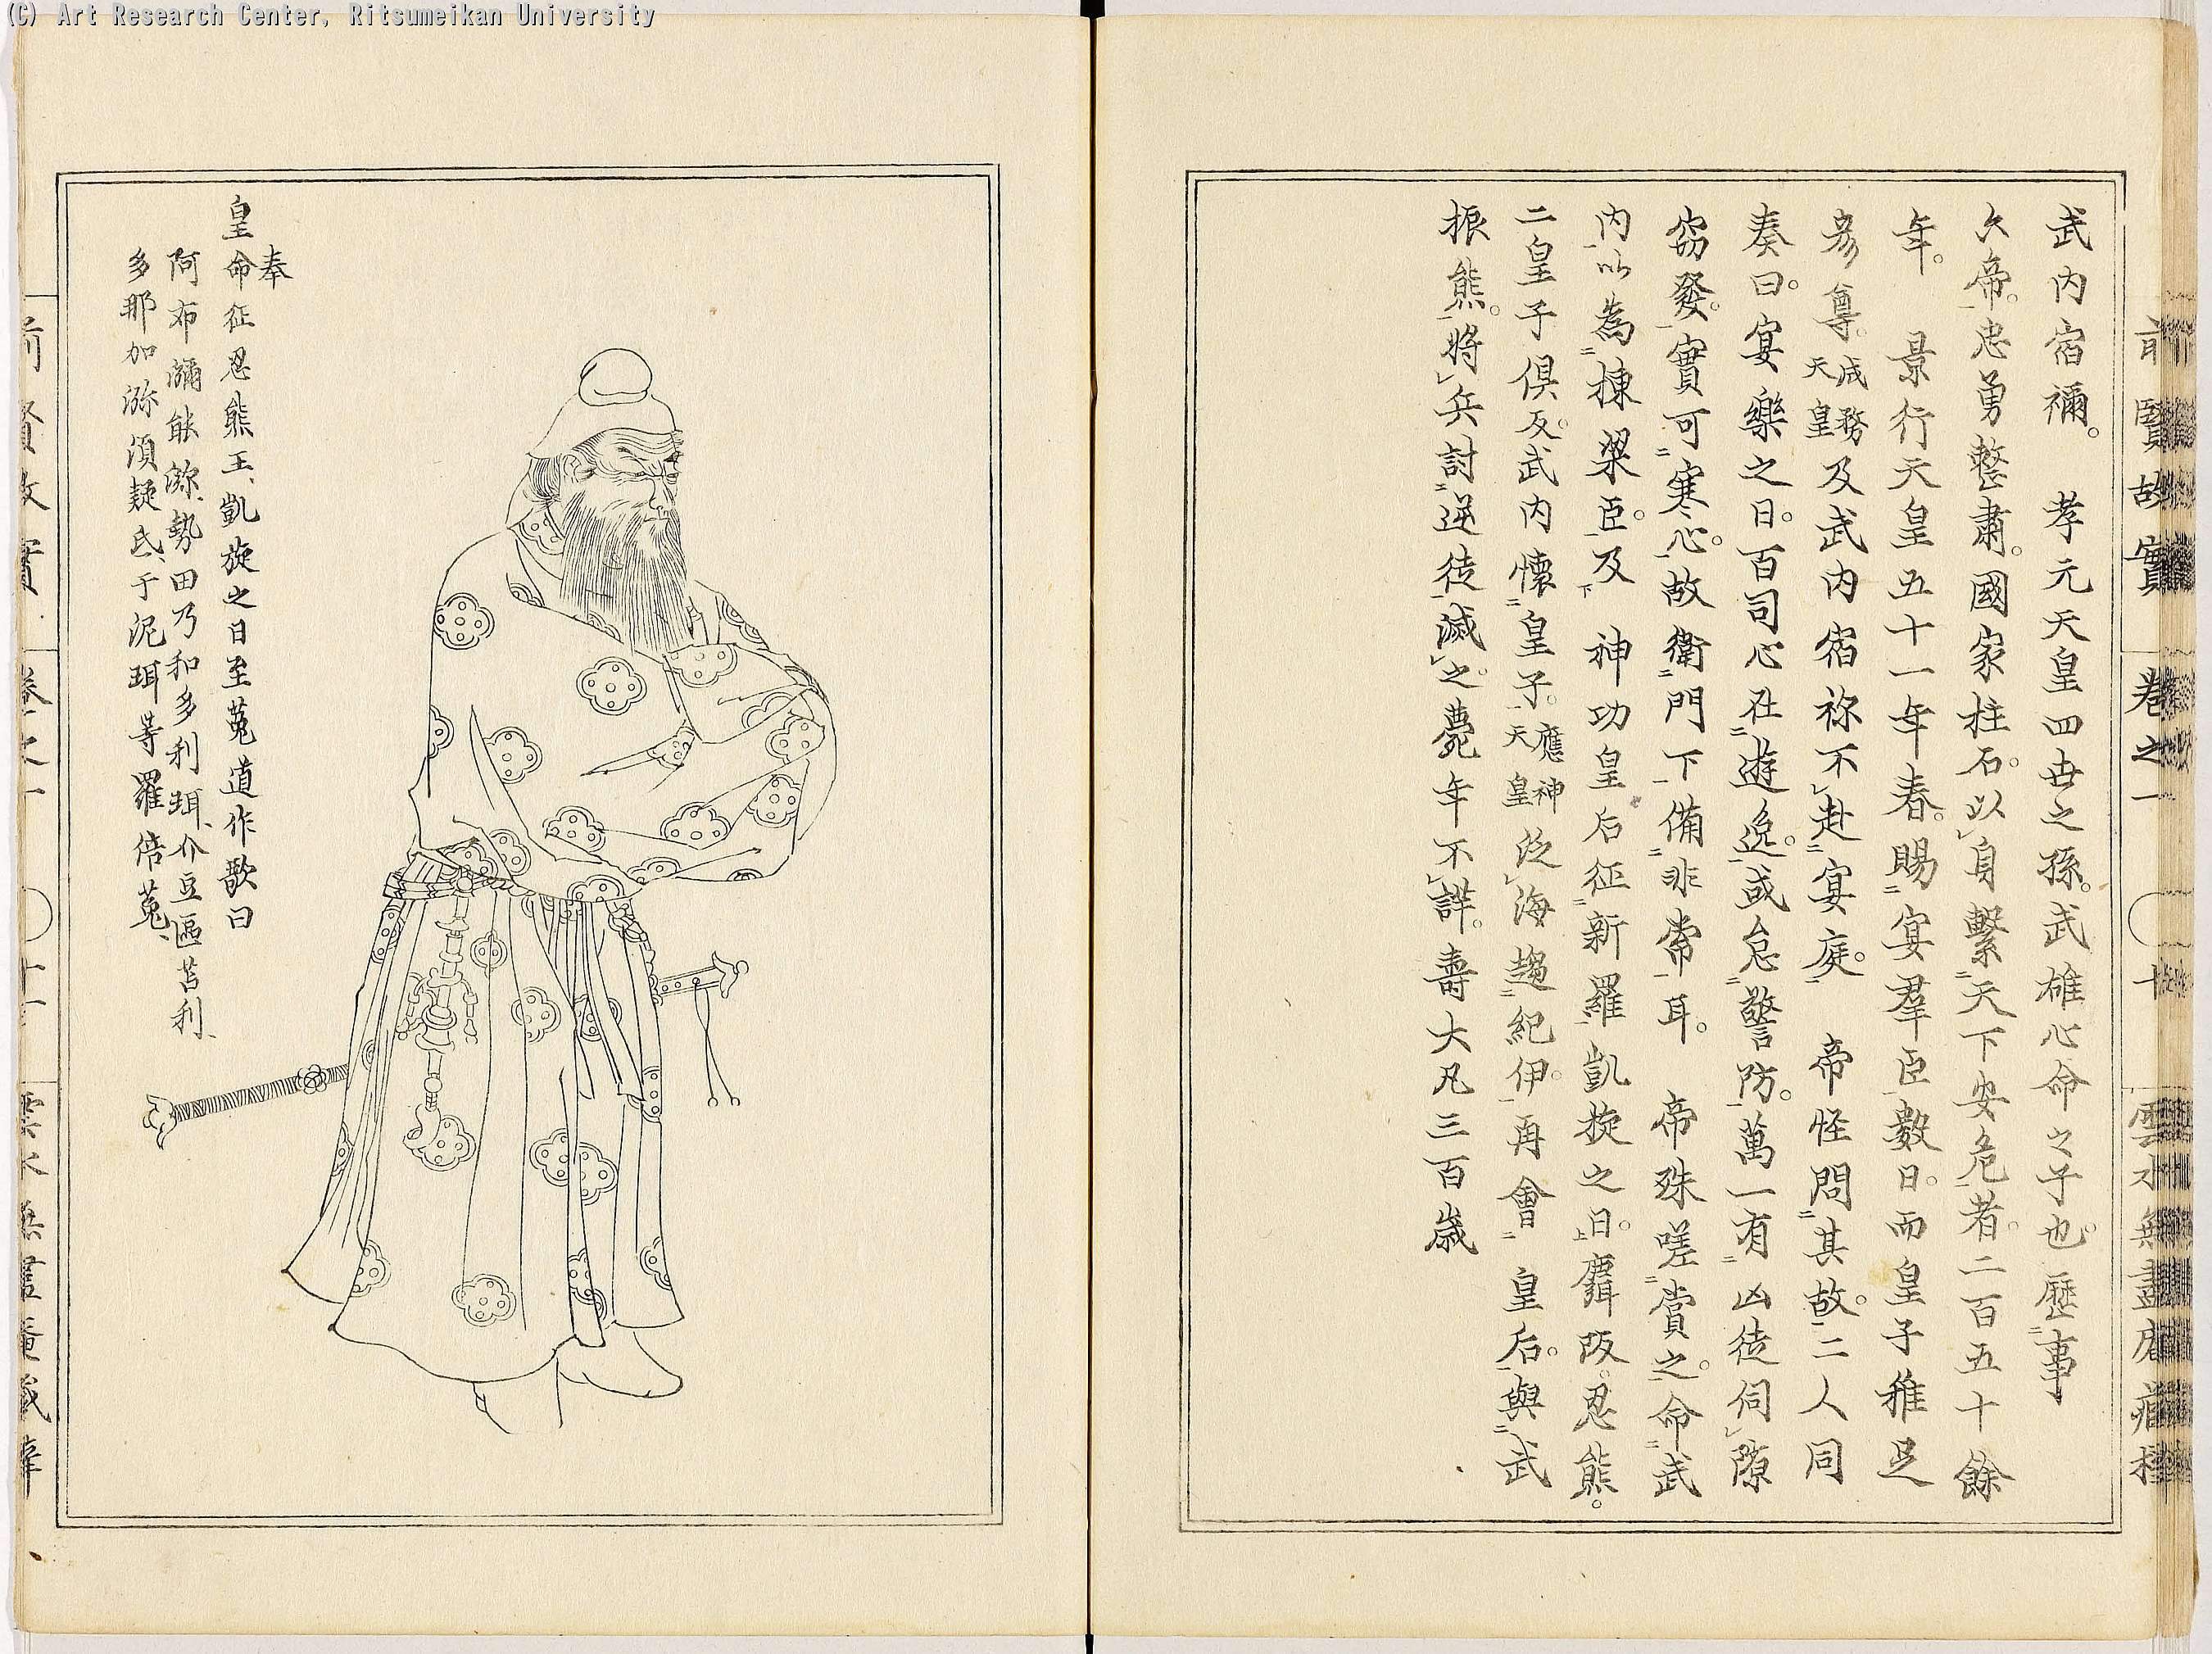 (C) Art Research Center, Ritsumeikan University
前賢故實 卷之一 〇十 雲水無盡庵藏梓
武内宿禰。 孝元天皇四世之孫。武雄心命之子也。歷事
六帝。忠勇整肅。國家柱石。以身繫天下安危者。二百五十餘
年。 景行天皇五十一年春。賜宴羣臣數日。而皇子稚足
彦尊。成務天皇及武内宿祢不赴宴庭。 帝怪問其故。二人同
奏曰。宴樂之日。百司心在遊逸。或怠警防。萬一有凶徒伺隙
窃發。實可寒心。故衛門下備非常耳。 帝殊嗟賞之。命武
内以為棟梁臣。及 神功皇后征新羅凱旋之日。麛阪。忍熊。
二皇子倶反。武内懷皇子。應神天皇泛海趨紀伊。再會 皇后。與武
振熊。將兵討逆徒滅之。薨年不詳。壽大凡三百歲
奉
皇命征忍熊王、凱旋之日至菟道作歌曰
阿布彌能 勢田乃和多利珥、介豆區苔利、
多那加瀰須疑氐、于泥珥等羅倍菟、
前賢故實 卷之一 〇十一 雲水無盡庵藏梓